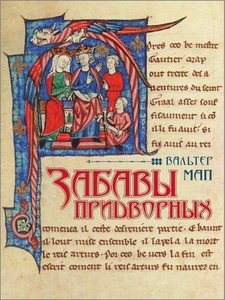 pres ceo ke mestre
Gautier map
out treite des a
uentures du seint
Graal. asses souf
fisaument si co
il li fu auis. si
fu auis au re
ВАЛЬТЕР
МАП
ЗАБАВЫ
ПРИДВОРНЫХ
comenca il ceste desreniere partie. E kaunt
il lout mise ensemble il lapela la mort
le reis arturs. Por ceo ke uers la fin. est
escrit coment li reis arturs fu naurez en